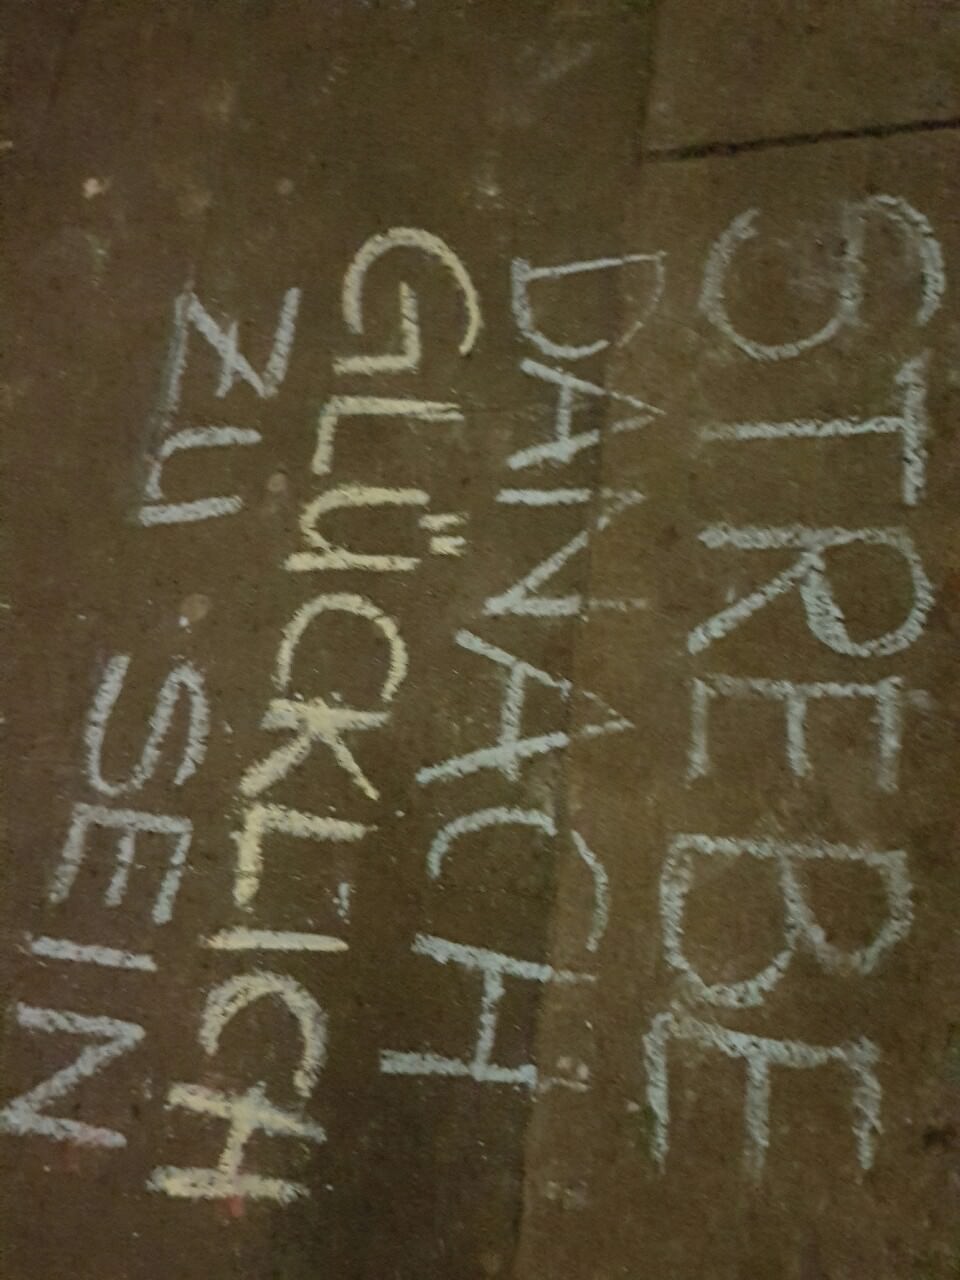 STREBE
DANACH
GLÜCKLICH
ZU SEIN